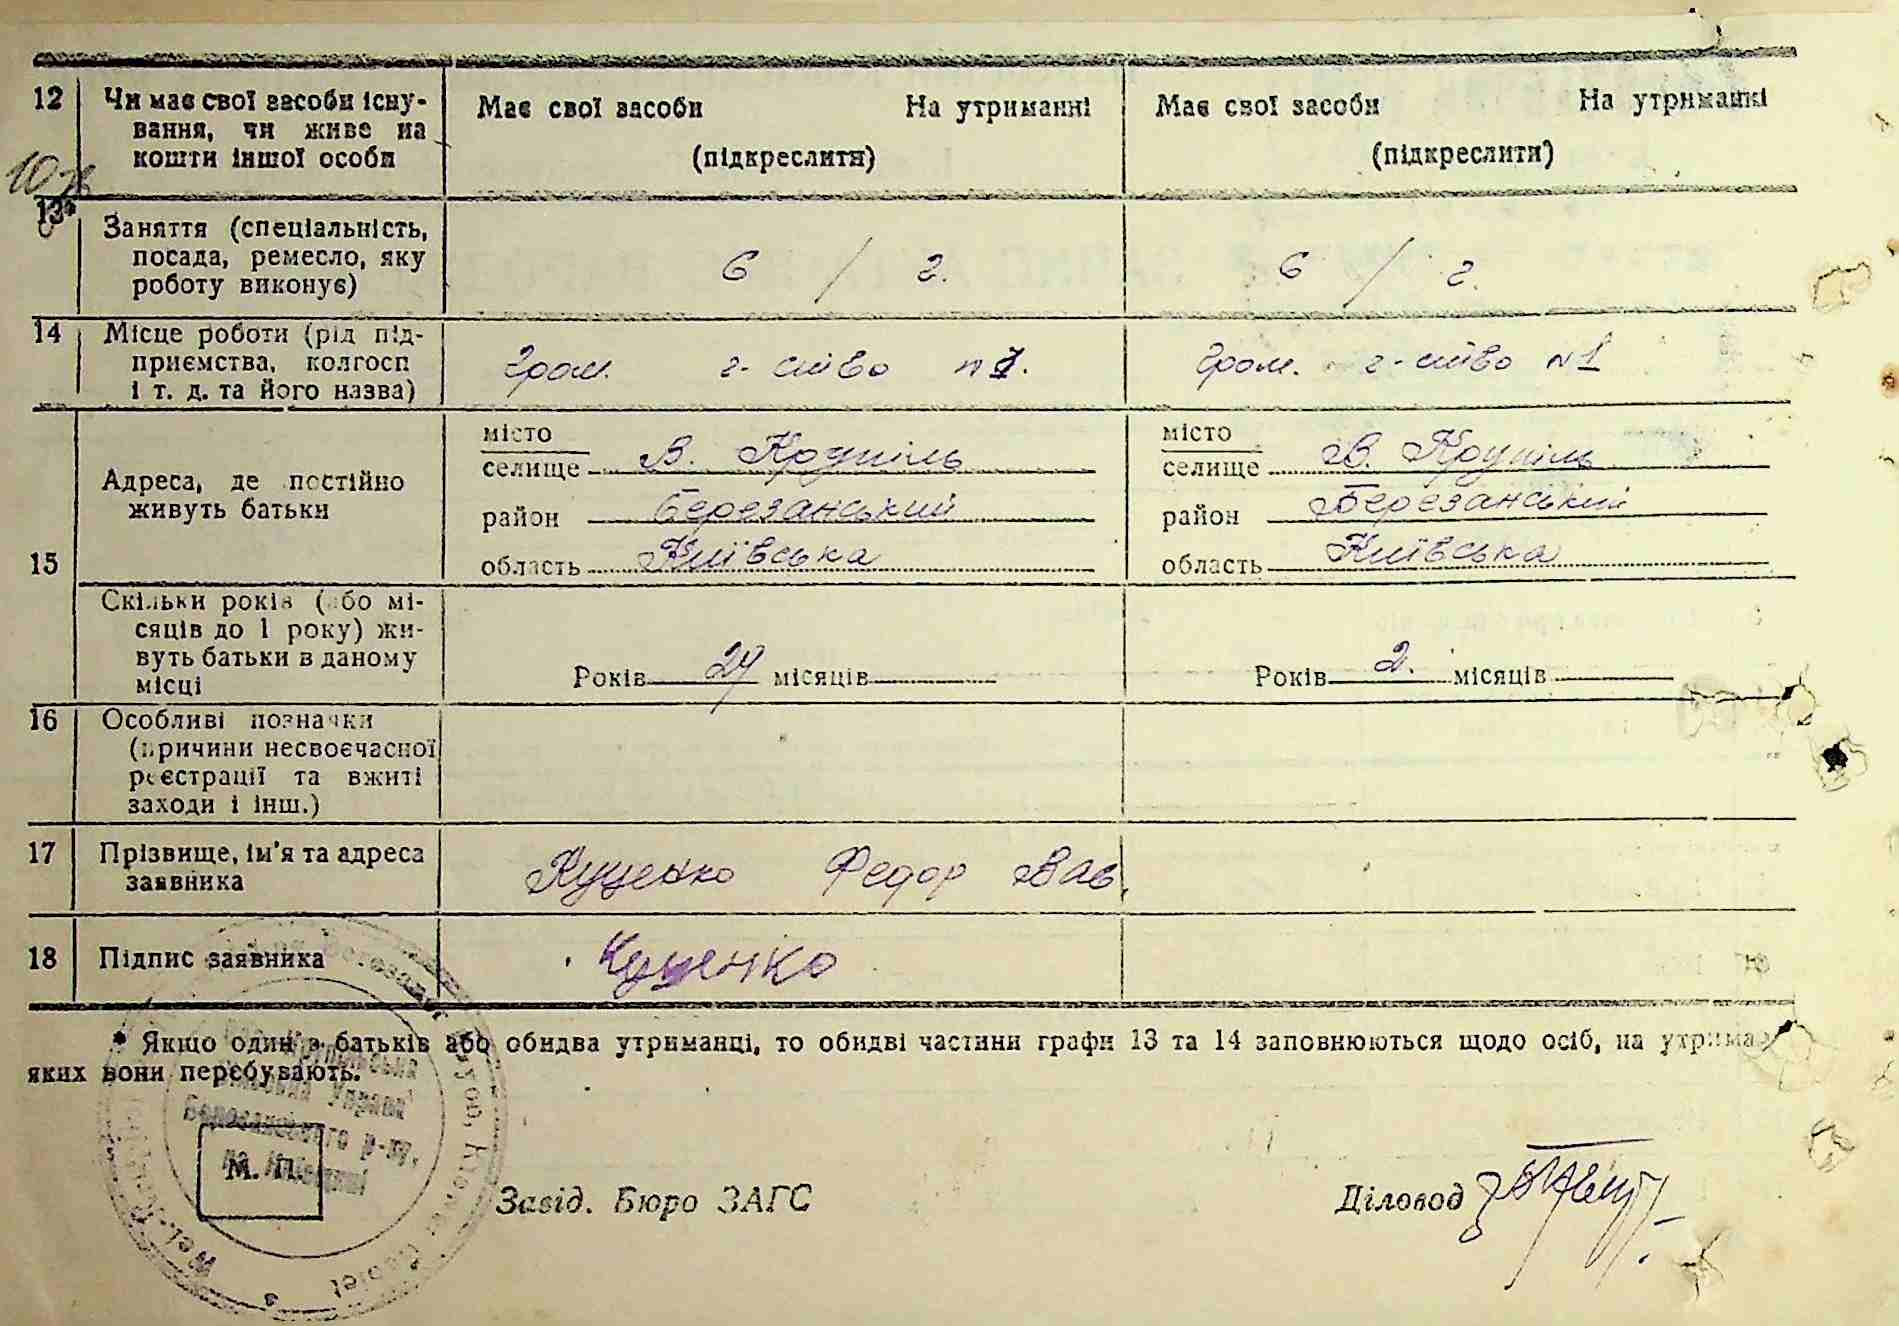 12 Чи має свої засоби існу-
вання, чи живе на
кошти іншої особи
Має свої засоби На утриманні
(підкреслити)
Має свої засоби На утриманні
(підкреслити)
13*
Заняття (спеціальність,
посада, ремесло, яку
роботу виконує)
6 / г.
6 / г.
14 Місце роботи (рід під-
приємства, колгосп
і т. д. та його назва)
Гром. г-ство
Гром. г-ство №1
15
Адреса, де постійно
живуть батьки
місто
селище В. Крупіль
район Березанський
область Київська
місто
селище В. Крупіль
район Березанський
область Київська
Скільки років (або мі-
сяців до 1 року) жи-
вуть батьки в даному
місці
Років місяців
Років 2. місяців
16 Особливі позначки
(причини несвоєчасної
реєстрації та вжиті
заходи і інш.)
17 Прізвище, ім'я та адреса
заявника
Куценко Федор Вас.
18 Підпис заявника
Куценко
* Якщо один з батьків або обидва утриманці, то обидві частини графи 13 та 14 заповнюються щодо осіб, на
яких вони перебувають.
Управа
Березанського р-ну,
М. П.
Завід. Бюро ЗАГС
Діловод